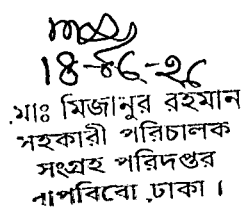 মোঃ মিজানুর রহমান
সহকারী পরিচালক
সংগ্রহ পরিদপ্তর
বাপবিবো, ঢাকা ।